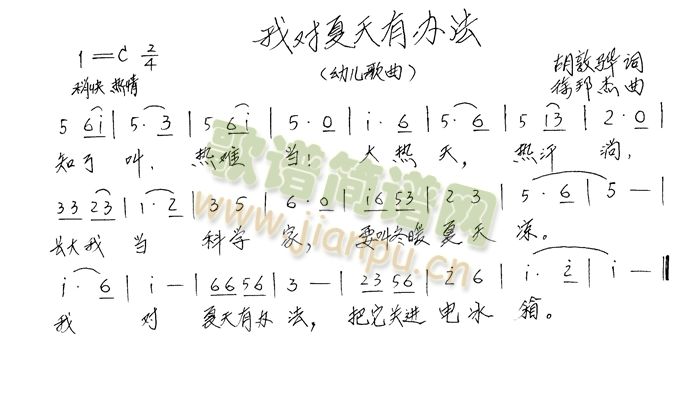 我对夏天有办法
1=C 2/4
(幼儿歌曲)
胡敦骅 词
稍快 热情
徐邦杰 曲
5 6i | 5· 3 | 5 6i | 5· 0 | i· 6 | 5· 6 | 5 i3 | 2· 0 |
知了 叫, 热难 当! 大热 天, 热汗 淌,
33 23 | 1· 2 | 35 | 6· 0 | i6 53 | 2 3 | 5· 6 | 5 — |
长大我 当 科学 家, 要叫冬暖 夏天 凉。
i· 6 | i — | 66 56 | 3 — | 23 56 | 2 6 | i· 2 | i — ‖
我 对 夏天有办 法, 把它关进 电冰 箱。
歌谱简谱网
www.jianpu.cn